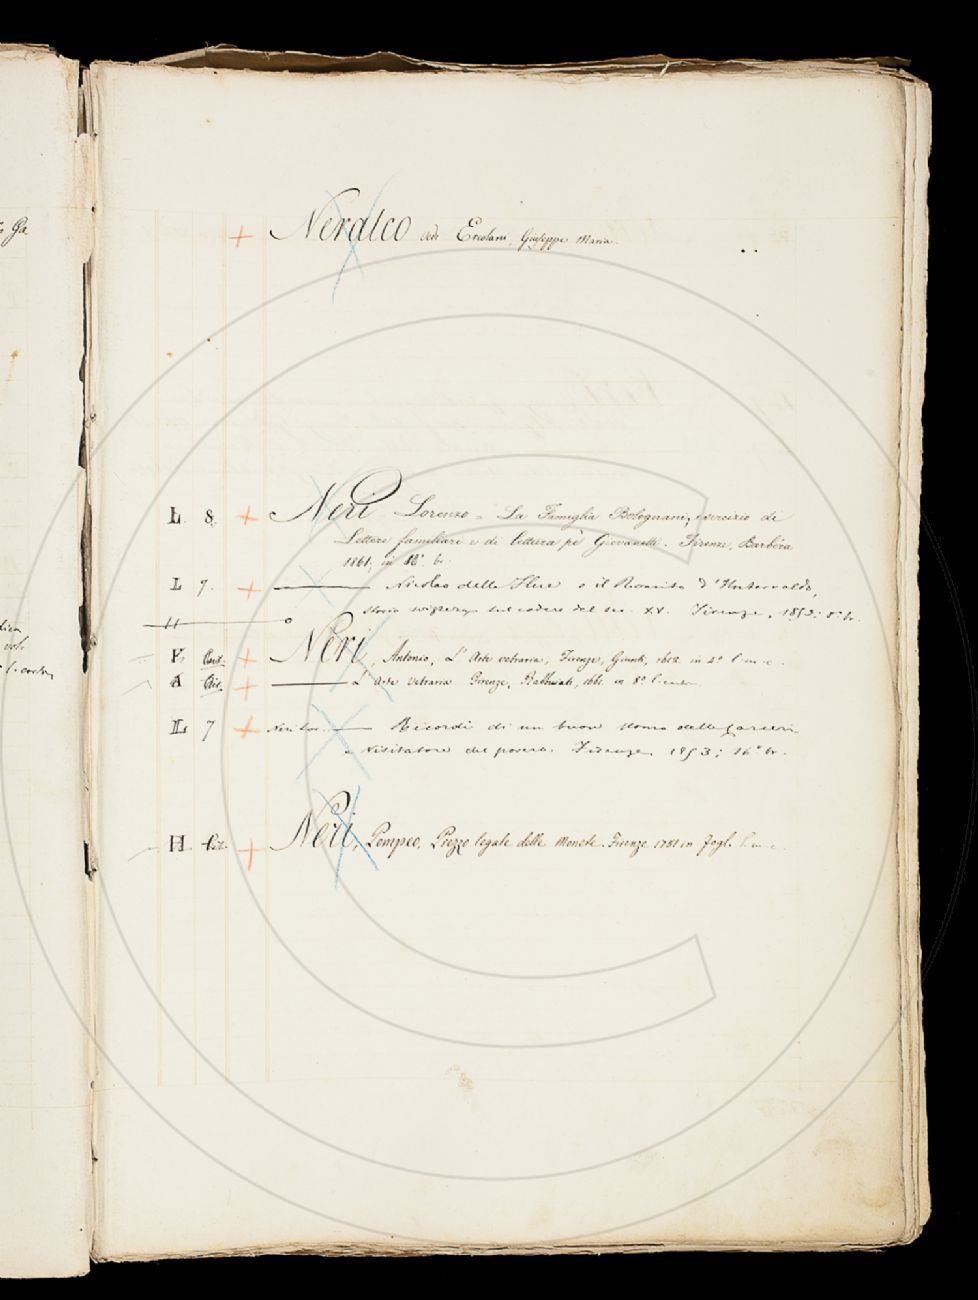 Ga
+ Neralco vedi Ercolani, Giuseppe Maria.
L 8. + Neri Lorenzo = La Famiglia Bolognani, esercizio di
Lettere familiari e di lettura pe' Giovanetti. Firenze, Barbèra
1861, in 16° br.
L 7. + ——— Nicolao delle Flüe o il Romito d'Unterwaldo,
storia svizzera sul cadere del sec. XV. Firenze, 1852: 8° br.
F + Neri, Antonio, L'Arte vetraria, Firenze, Giunti, 1612. in 4° l. m. c.
A + ——— L'Arte vetraria. Firenze, Rabbuiati, 1661. in 8°
L 7 + Neri Lor. ——— Ricordi di un buon uomo delle carceri
e visitatore del povero. Firenze 1853; 16° br.
H + Neri, Pompeo, Prezzo legale delle Monete. Firenze 1751 in fogl. l. m. c.